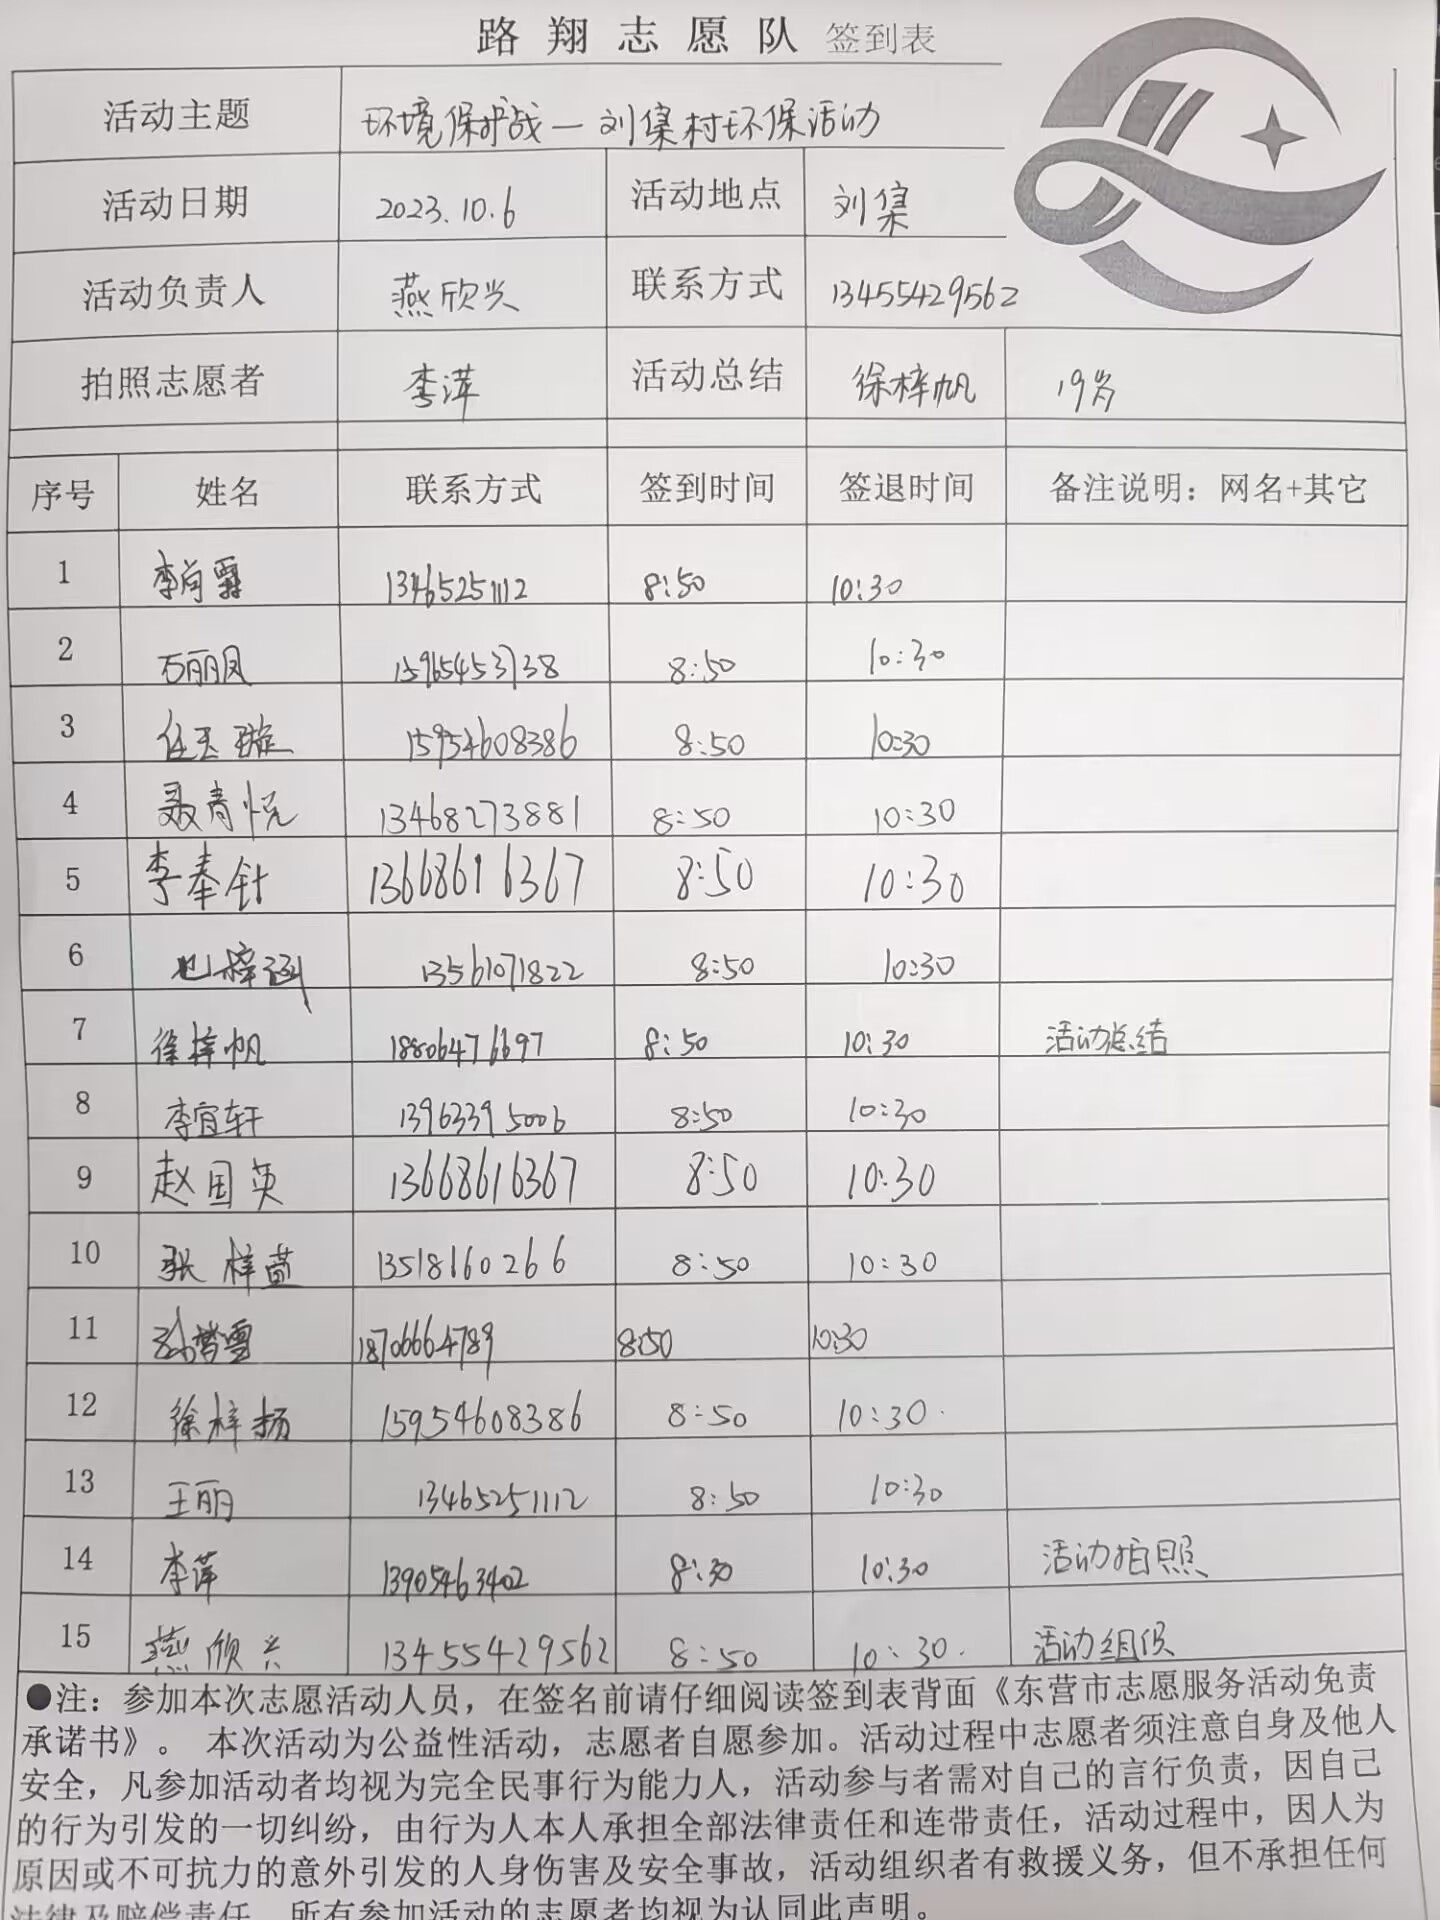 路翔志愿队 签到表
活动主题 环境保护战—刘集村环保活动
活动日期 2023.10.6 活动地点 刘集
活动负责人 燕欣兴 联系方式 13455429562
拍照志愿者 李萍 活动总结 徐梓帆 19岁
序号 姓名 联系方式 签到时间 签退时间 备注说明：网名+其它
1 李肖霖 13465251112 8:50 10:30
2 石丽凤 15965453738 8:50 10:30
3 任玉璇 15954608386 8:50 10:30
4 聂青悦 13468273881 8:50 10:30
5 李奉针 13668616367 8:50 10:30
6 梓涵 13561071822 8:50 10:30
7 徐梓帆 18806476697 8:50 10:30 活动总结
8 李宜轩 13963395006 8:50 10:30
9 赵国英 13668616367 8:50 10:30
10 张梓萱 13518160266 8:50 10:30
11 雪 18706664789 8:50 10:30
12 徐梓扬 15954608386 8:50 10:30.
13 王丽 13465251112 8:50 10:30
14 李萍 13905463402 8:30 10:30 活动拍照
15 燕欣兴 13455429562 8:50 10:30. 活动组织
●注：参加本次志愿活动人员，在签名前请仔细阅读签到表背面《东营市志愿服务活动免责
承诺书》。 本次活动为公益性活动，志愿者自愿参加。活动过程中志愿者须注意自身及他人
安全，凡参加活动者均视为完全民事行为能力人，活动参与者需对自己的言行负责，因自己
的行为引发的一切纠纷，由行为人本人承担全部法律责任和连带责任，活动过程中，因人为
原因或不可抗力的意外引发的人身伤害及安全事故，活动组织者有救援义务，但不承担任何
法律及赔偿责任，所有参加活动的志愿者均视为认同此声明。